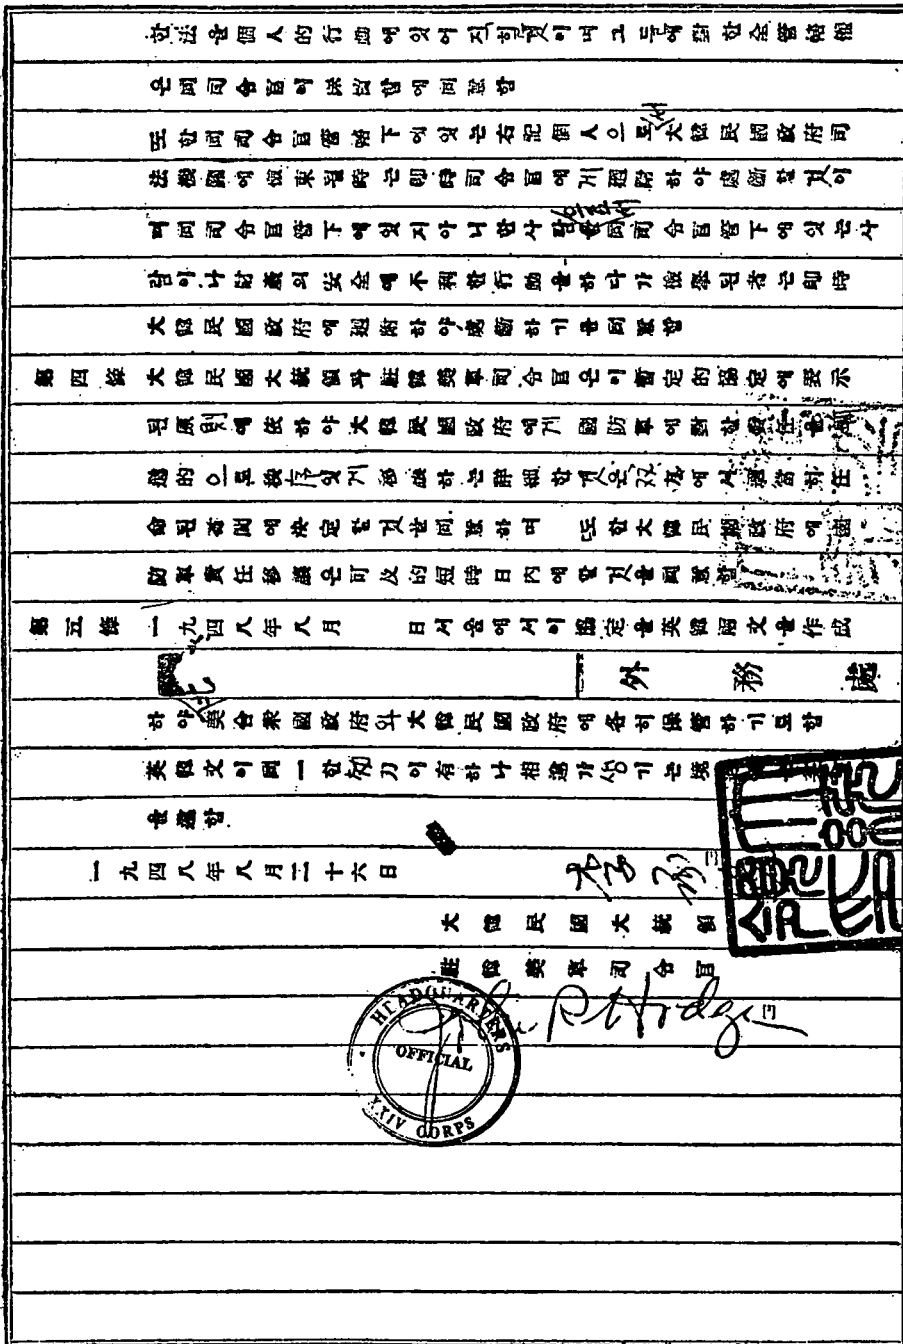 法을個人的行動에있어 그들에對한全管轄權
은同司令官이 함에同意함
또한同司令官管轄下에있는右記個人으로서大韓民國政府司
法機關에拘束될時는卽時司令官에게廻附하야處斷할것이
며同司令官管下에있지아니한사람으로서同司令官管下에있는사
람이나財產의安全에不利한行動을하다가檢擧된者는卽時
大韓民國政府에廻附하야處斷하기를同意함
第四條 大韓民國大統領과駐韓美軍司令官은이暫定的協定에表示
된原則에依하야大韓民國政府에게 國防軍에對한責任을漸
進的으로秩序있게移讓하는詳細한것은 에서適當히任
命된者間에決定할것을同意하며 또한大韓民國政府에國
防軍責任移讓은可及的短時日內에할것을同意함
第五條 一九四八年八月 日서울에서이協定을英韓兩文을作成
外務處
하야美合衆國政府와大韓民國政府에各히保管하기로함
英韓文이同一한効力이有하나相違가생기는境
을遵함
一九四八年八月二十六日
李承
大韓民國大統領
駐韓美軍司令官
John R Hodge
HEADQUARTERS
OFFICIAL
XXIV CORPS